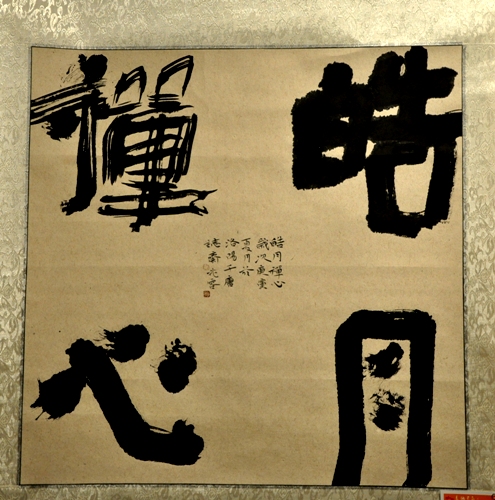 皓月
禪心
皓月禪心
歲次庚寅
夏月於
洛陽千唐
誌齋